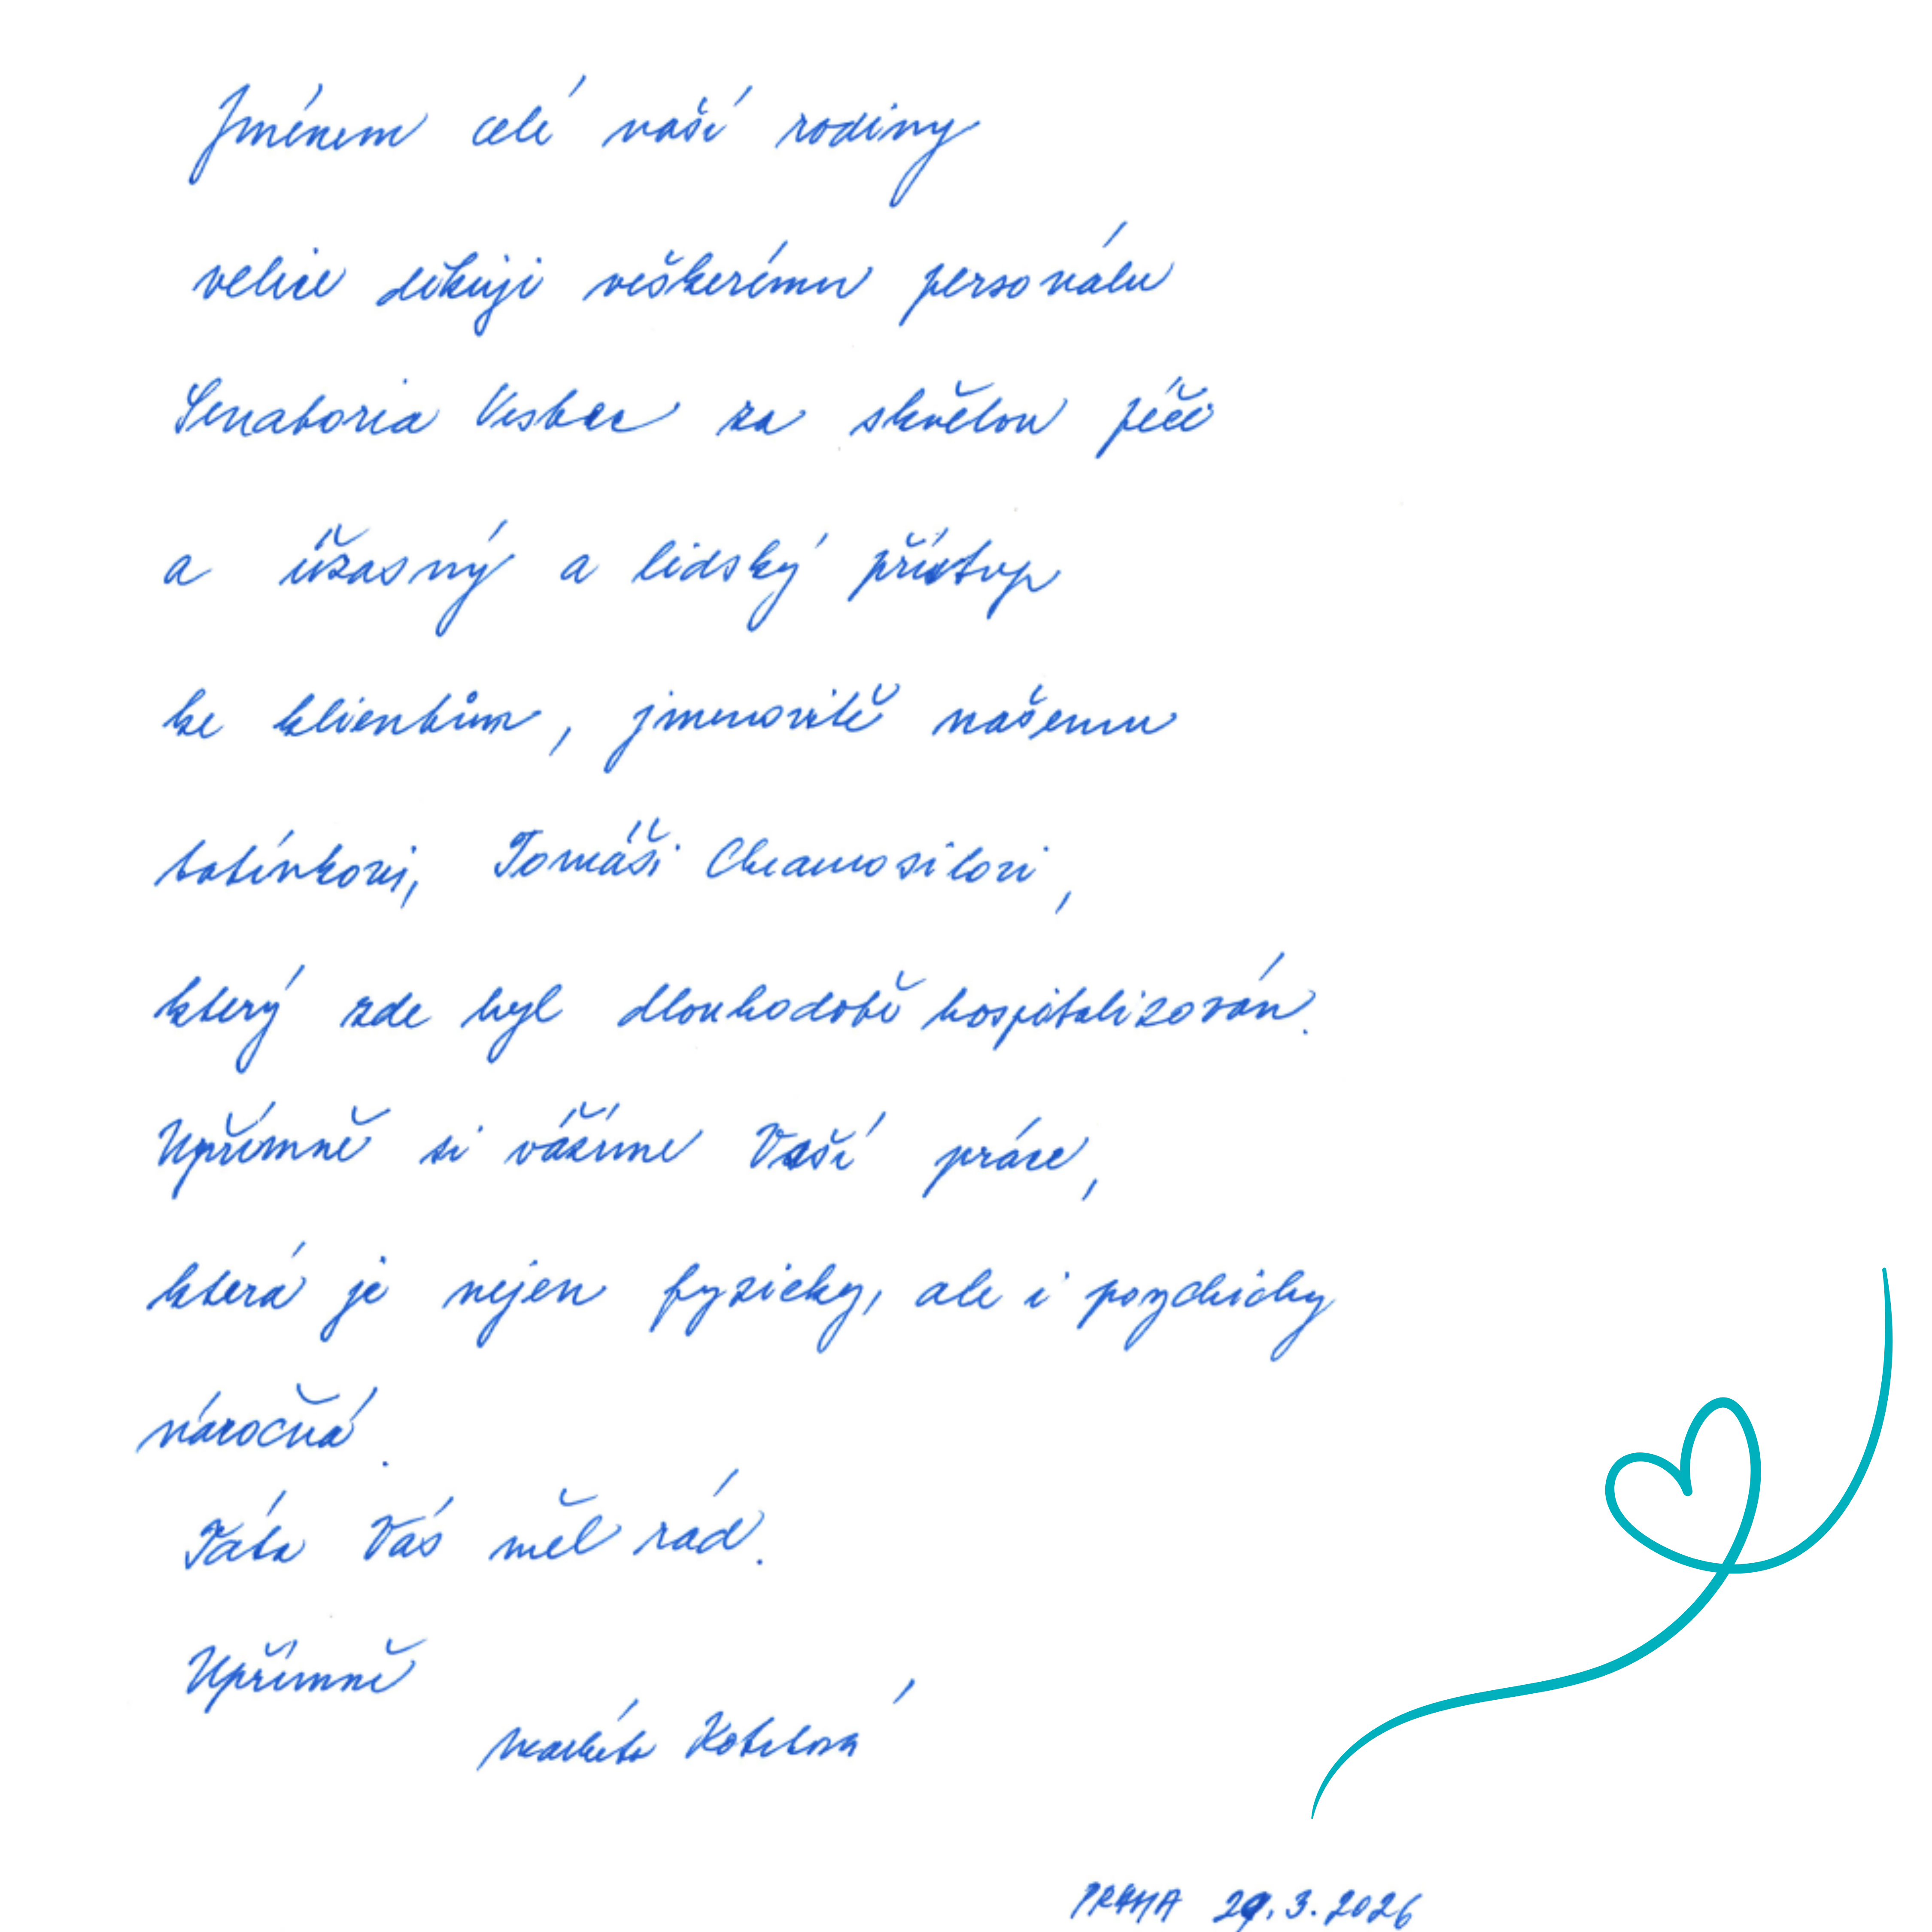 Jménem celé naší rodiny
velice děkuji veškerému personálu
Senatoria Vesbec za skvělou péči
a úžasný a lidský přístup
ke klientům, jmenovitě našemu
tatínkovi, Tomáši
který zde byl dlouhodobě hospitalizován.
Upřímně si vážíme Vaší práce,
která je nejen fyzicky, ale i psychicky
náročná.
Táta Vás měl rád.
Upřímně
Markéta
PRAHA 29.3.2026